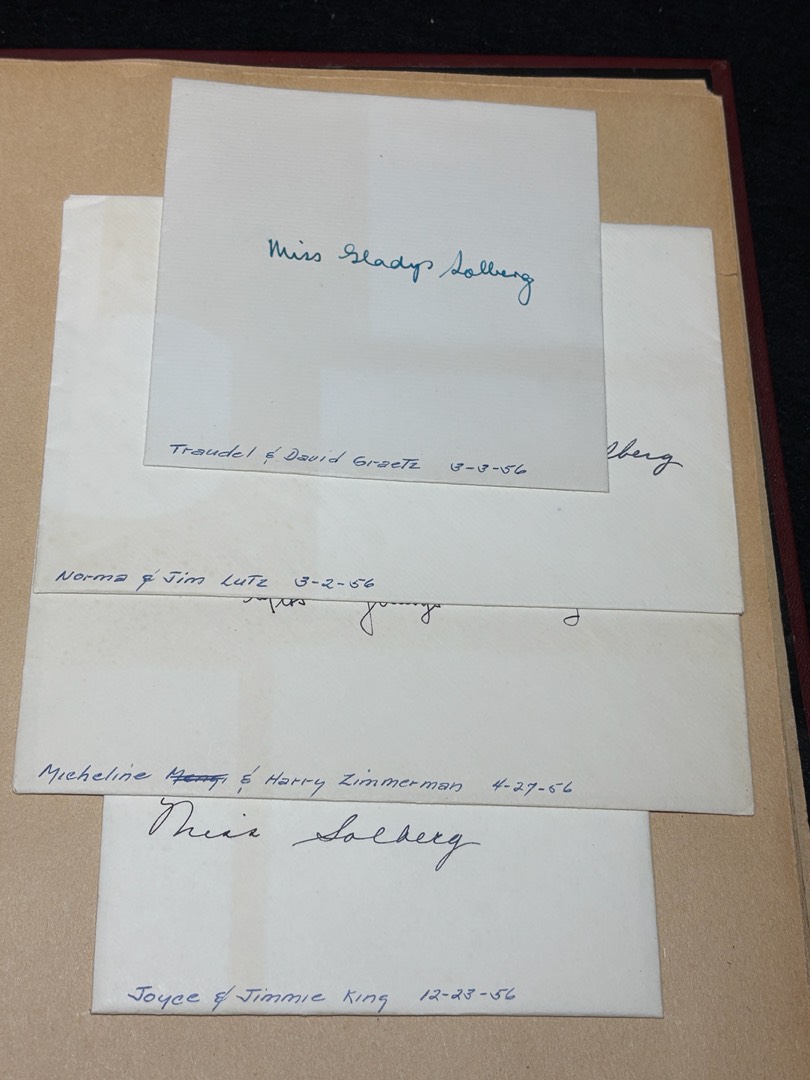 Miss Gladys Solberg
Traudel & David Graetz 3-3-56
lberg
Norma & Jim Lutz 3-2-56
Micheline & Harry Zimmerman 4-27-56
Miss Solberg
Joyce & Jimmie King 12-23-56